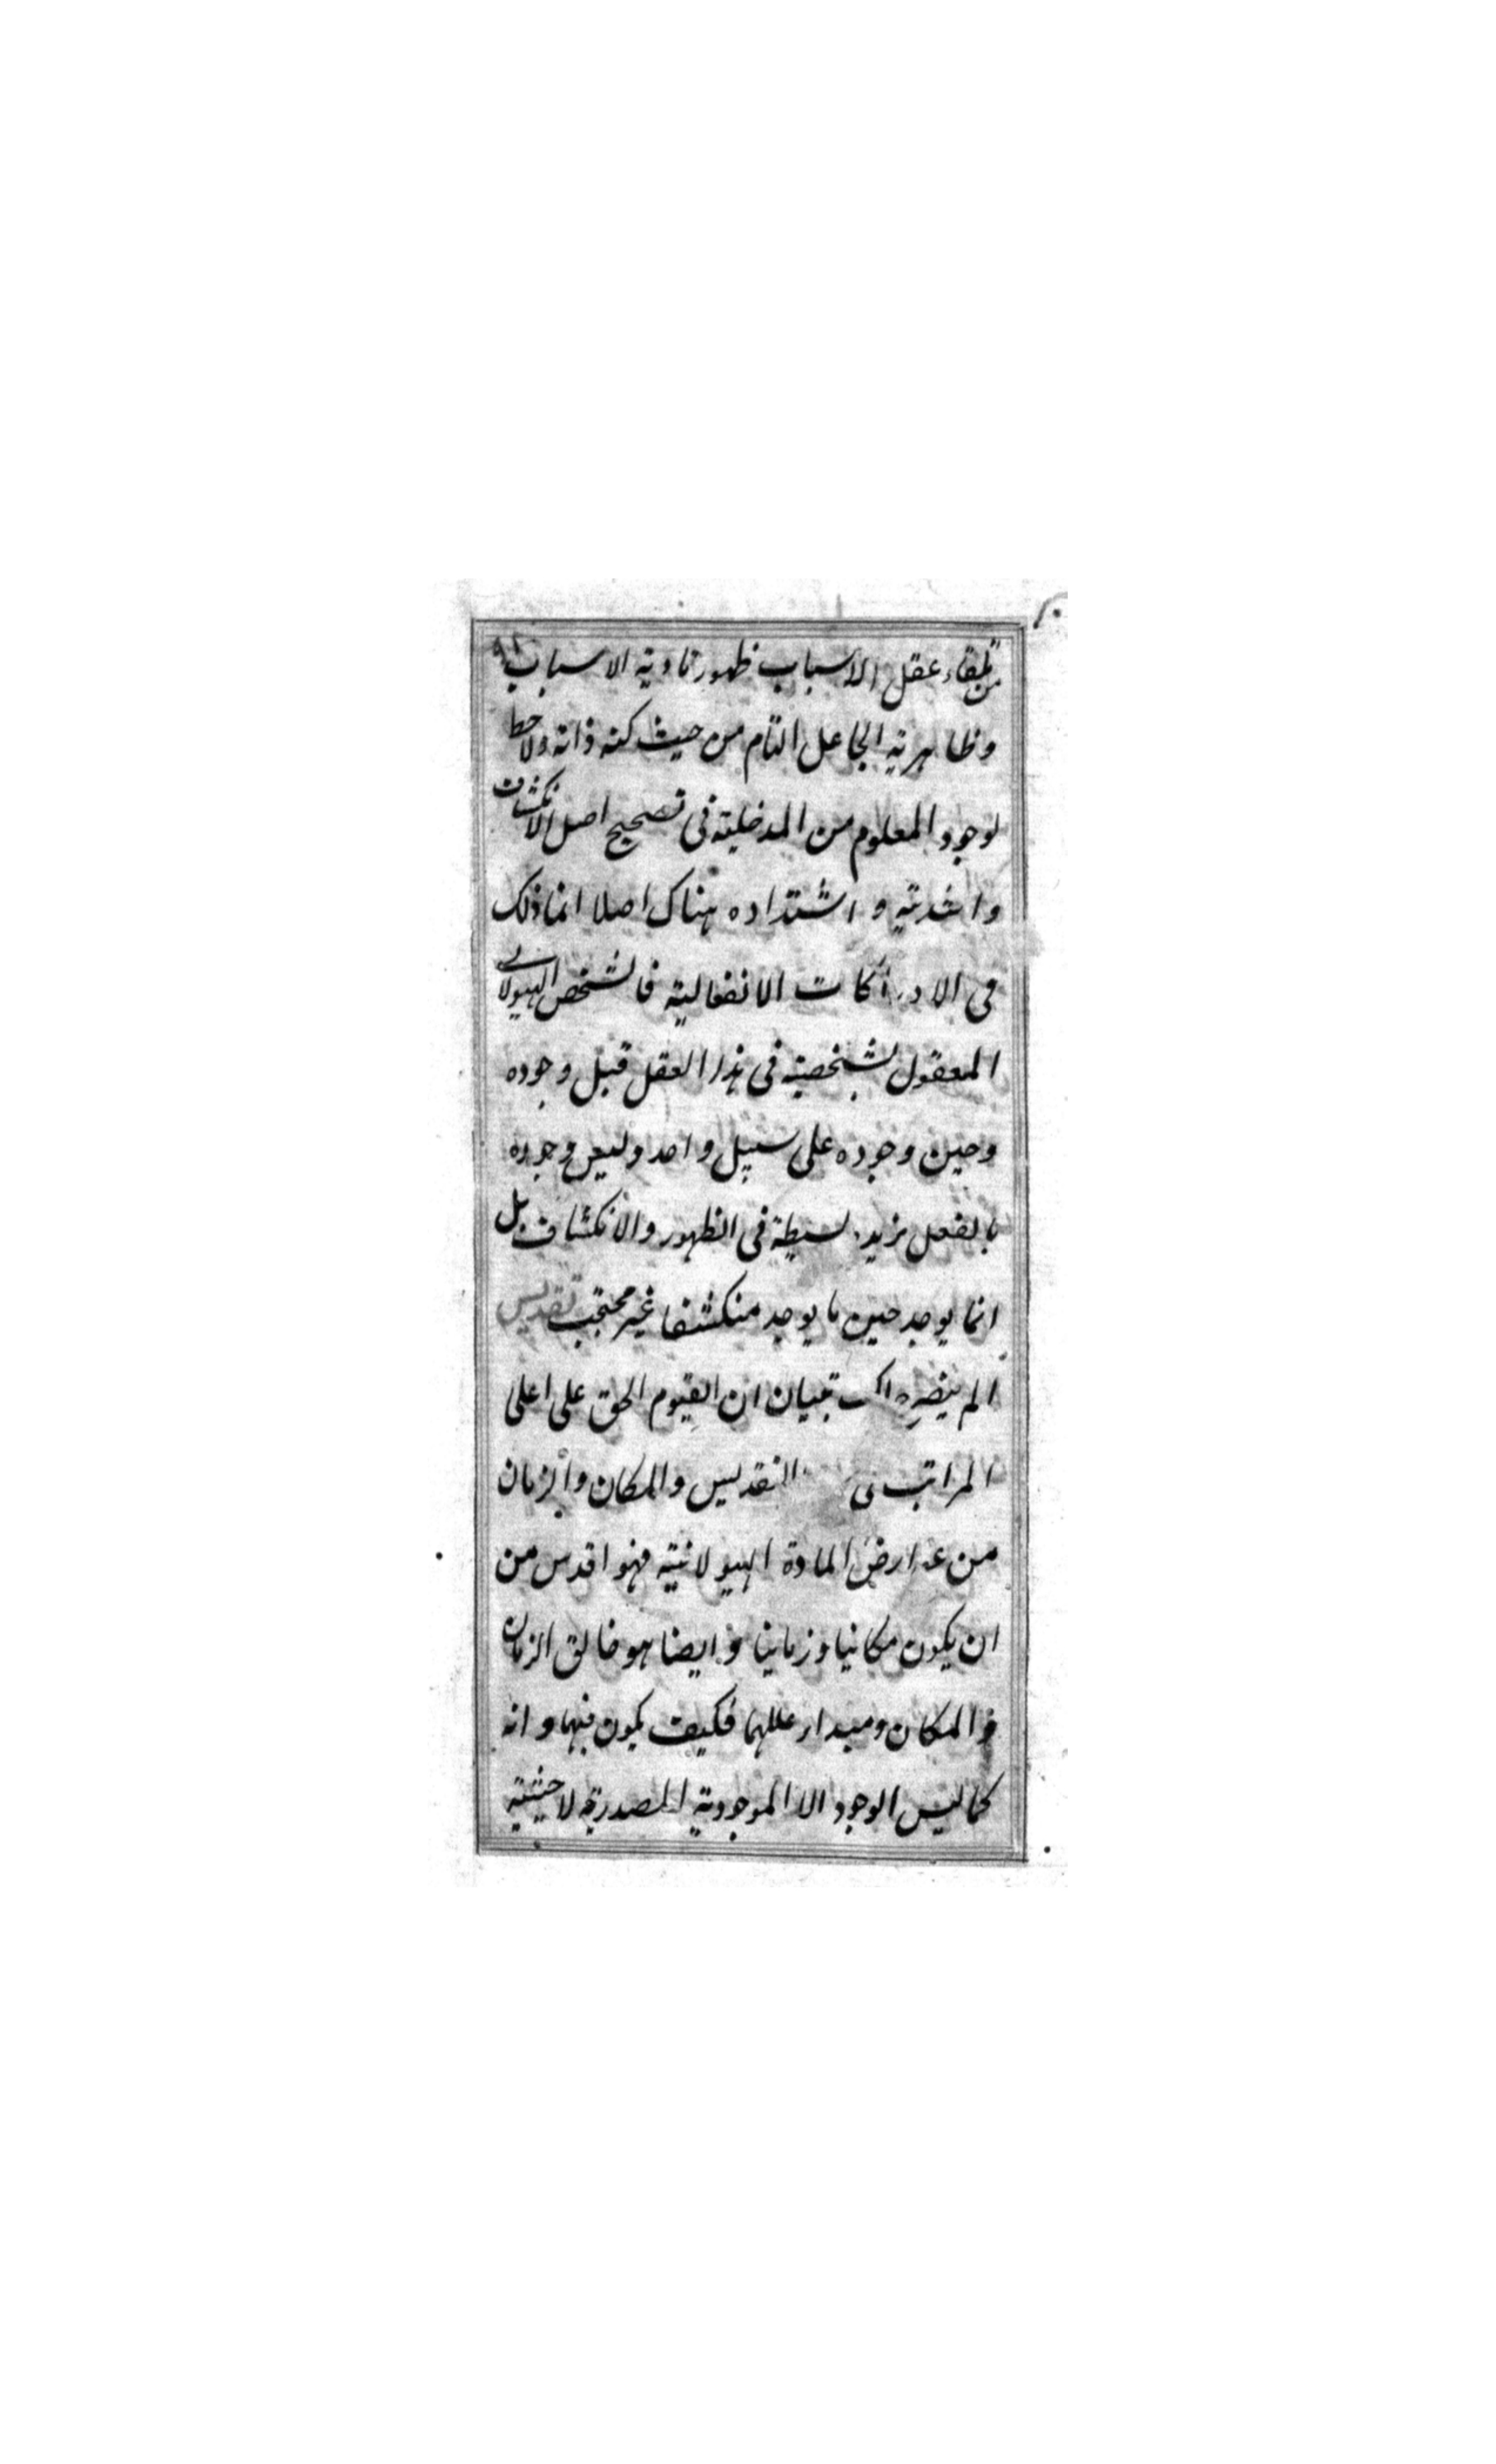 من تلقاء عقل الاسباب ظهور تادية الاسباب
وظاهرية الجاعل التام من حيث كنه ذاته ولا حظ
لوجود المعلوم من المدخلية فى تصحيح اصل الانكشاف
واشديته و اشتداده هناك اصلا انما ذلك
فى الادراكات الانفعالية فالشخص الهيولانى
المعقول بشخصيته فى هذا العقل قبل وجوده
وحين وجوده على سبيل واحد وليس وجوده
بالفعل يزيد بسيطة فى الظهور والانكشاف بل
انما يوجد حين ما يوجد منكشفا غير محتجب تقديس
الم تبيان ان القيوم الحق على اعلى
المراتب التقديس والمكان والزمان
من عوارض المادة الهيولانية فهو اقدس من
ان يكون مكانيا وزمانيا وايضا هو خالق الزمان
والمكان ومبدا عللهما فكيف يكون فيهما وانه
كما ليس الوجود الا الموجودية المصدرية لا حيثية